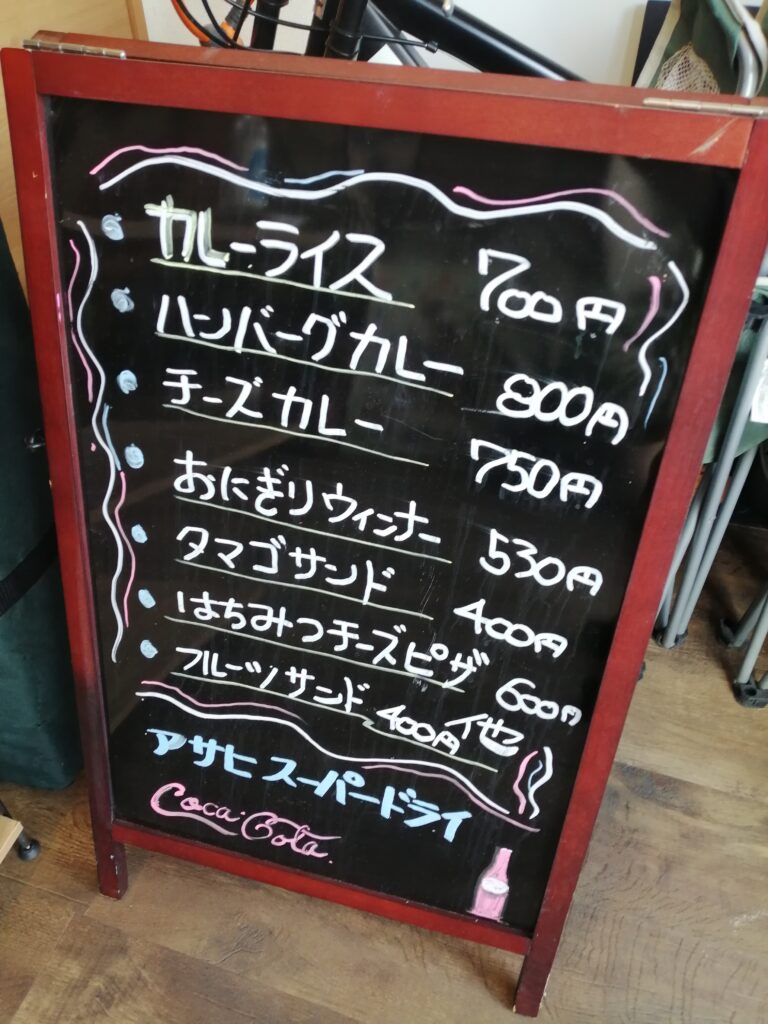 カレーライス 700円
ハンバーグカレー 800円
チーズカレー 750円
おにぎりウィンナー 530円
タマゴサンド 400円
はちみつチーズピザ 600円
フルーツサンド 400円 他
アサヒ スーパードライ
Coca-Cola